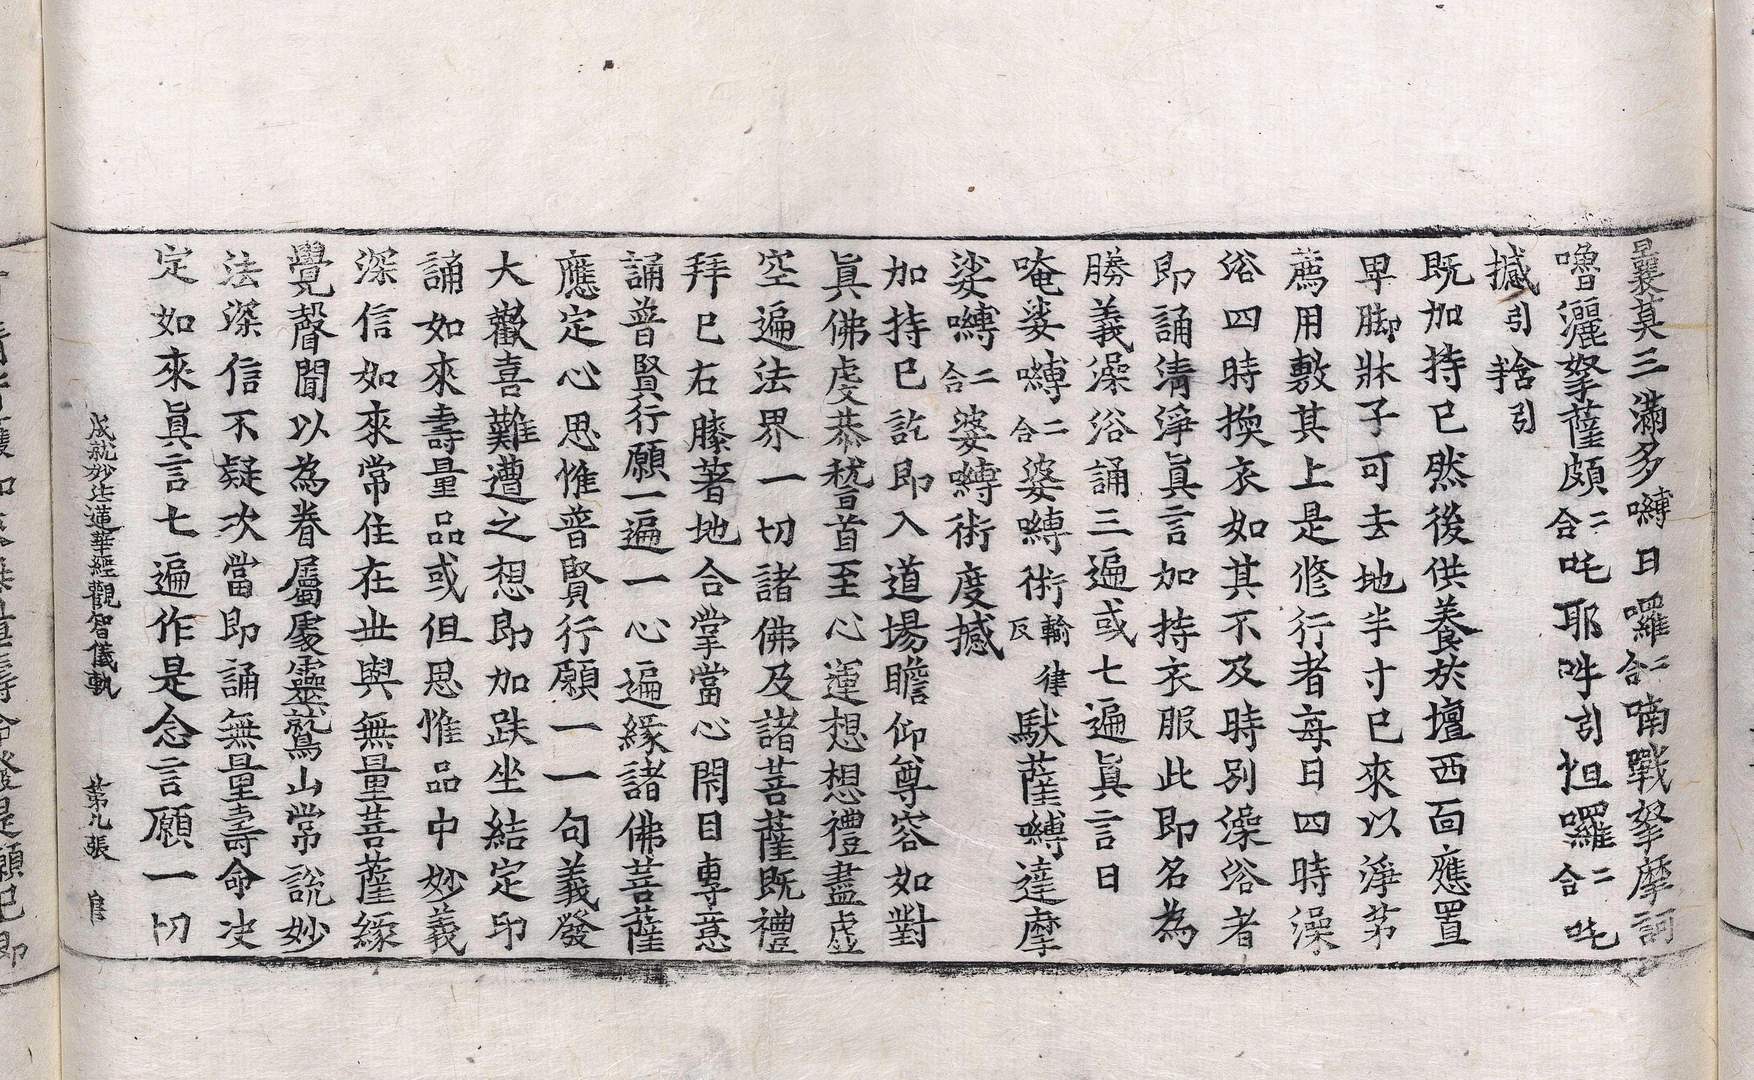 曩莫三滿多嚩日囉二合喃戰拏摩訶
嚕灑拏薩頗二合吒耶吽引怛囉二合吒
撼引𤚥引
既加持已然後供養於壇西面應置
卑脚牀子可去地半寸已來以淨茅
薦用敷其上是修行者每日四時澡
浴四時換衣如其不及時別澡浴者
即誦清淨眞言加持衣服此即名為
勝義澡浴誦三遍或七遍眞言曰
唵娑嚩二合婆嚩術輸律反馱薩嚩達摩
娑嚩二合婆嚩術度撼
加持已訖即入道場瞻仰尊容如對
眞佛虔恭稽首至心運想想禮盡虛
空遍法界一切諸佛及諸菩薩既禮
拜已右膝著地合掌當心閉目專意
誦普賢行願一遍一心遍緣諸佛菩薩
應定心思惟普賢行願一一句義發
大歡喜難遭之想即加趺坐結定印
誦如來壽量品或但思惟品中妙義
深信如來常住在世與無量菩薩緣
覺聲聞以為眷屬處靈鷲山常說妙
法深信不疑次當即誦無量壽命决
定如來眞言七遍作是念言願一切
成就妙法蓮華經觀智儀軌 第九張